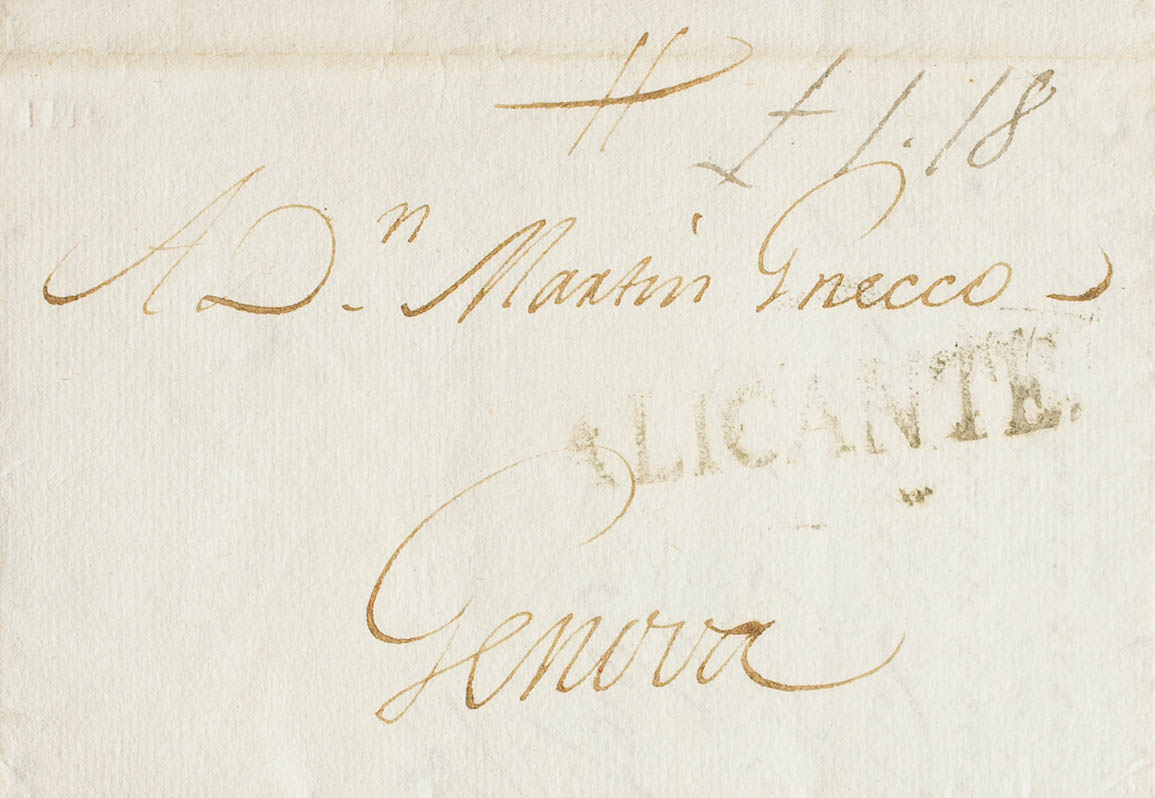 £ 1.18
A D.ⁿ Martin Gnecco
ALICANTE.
Genova